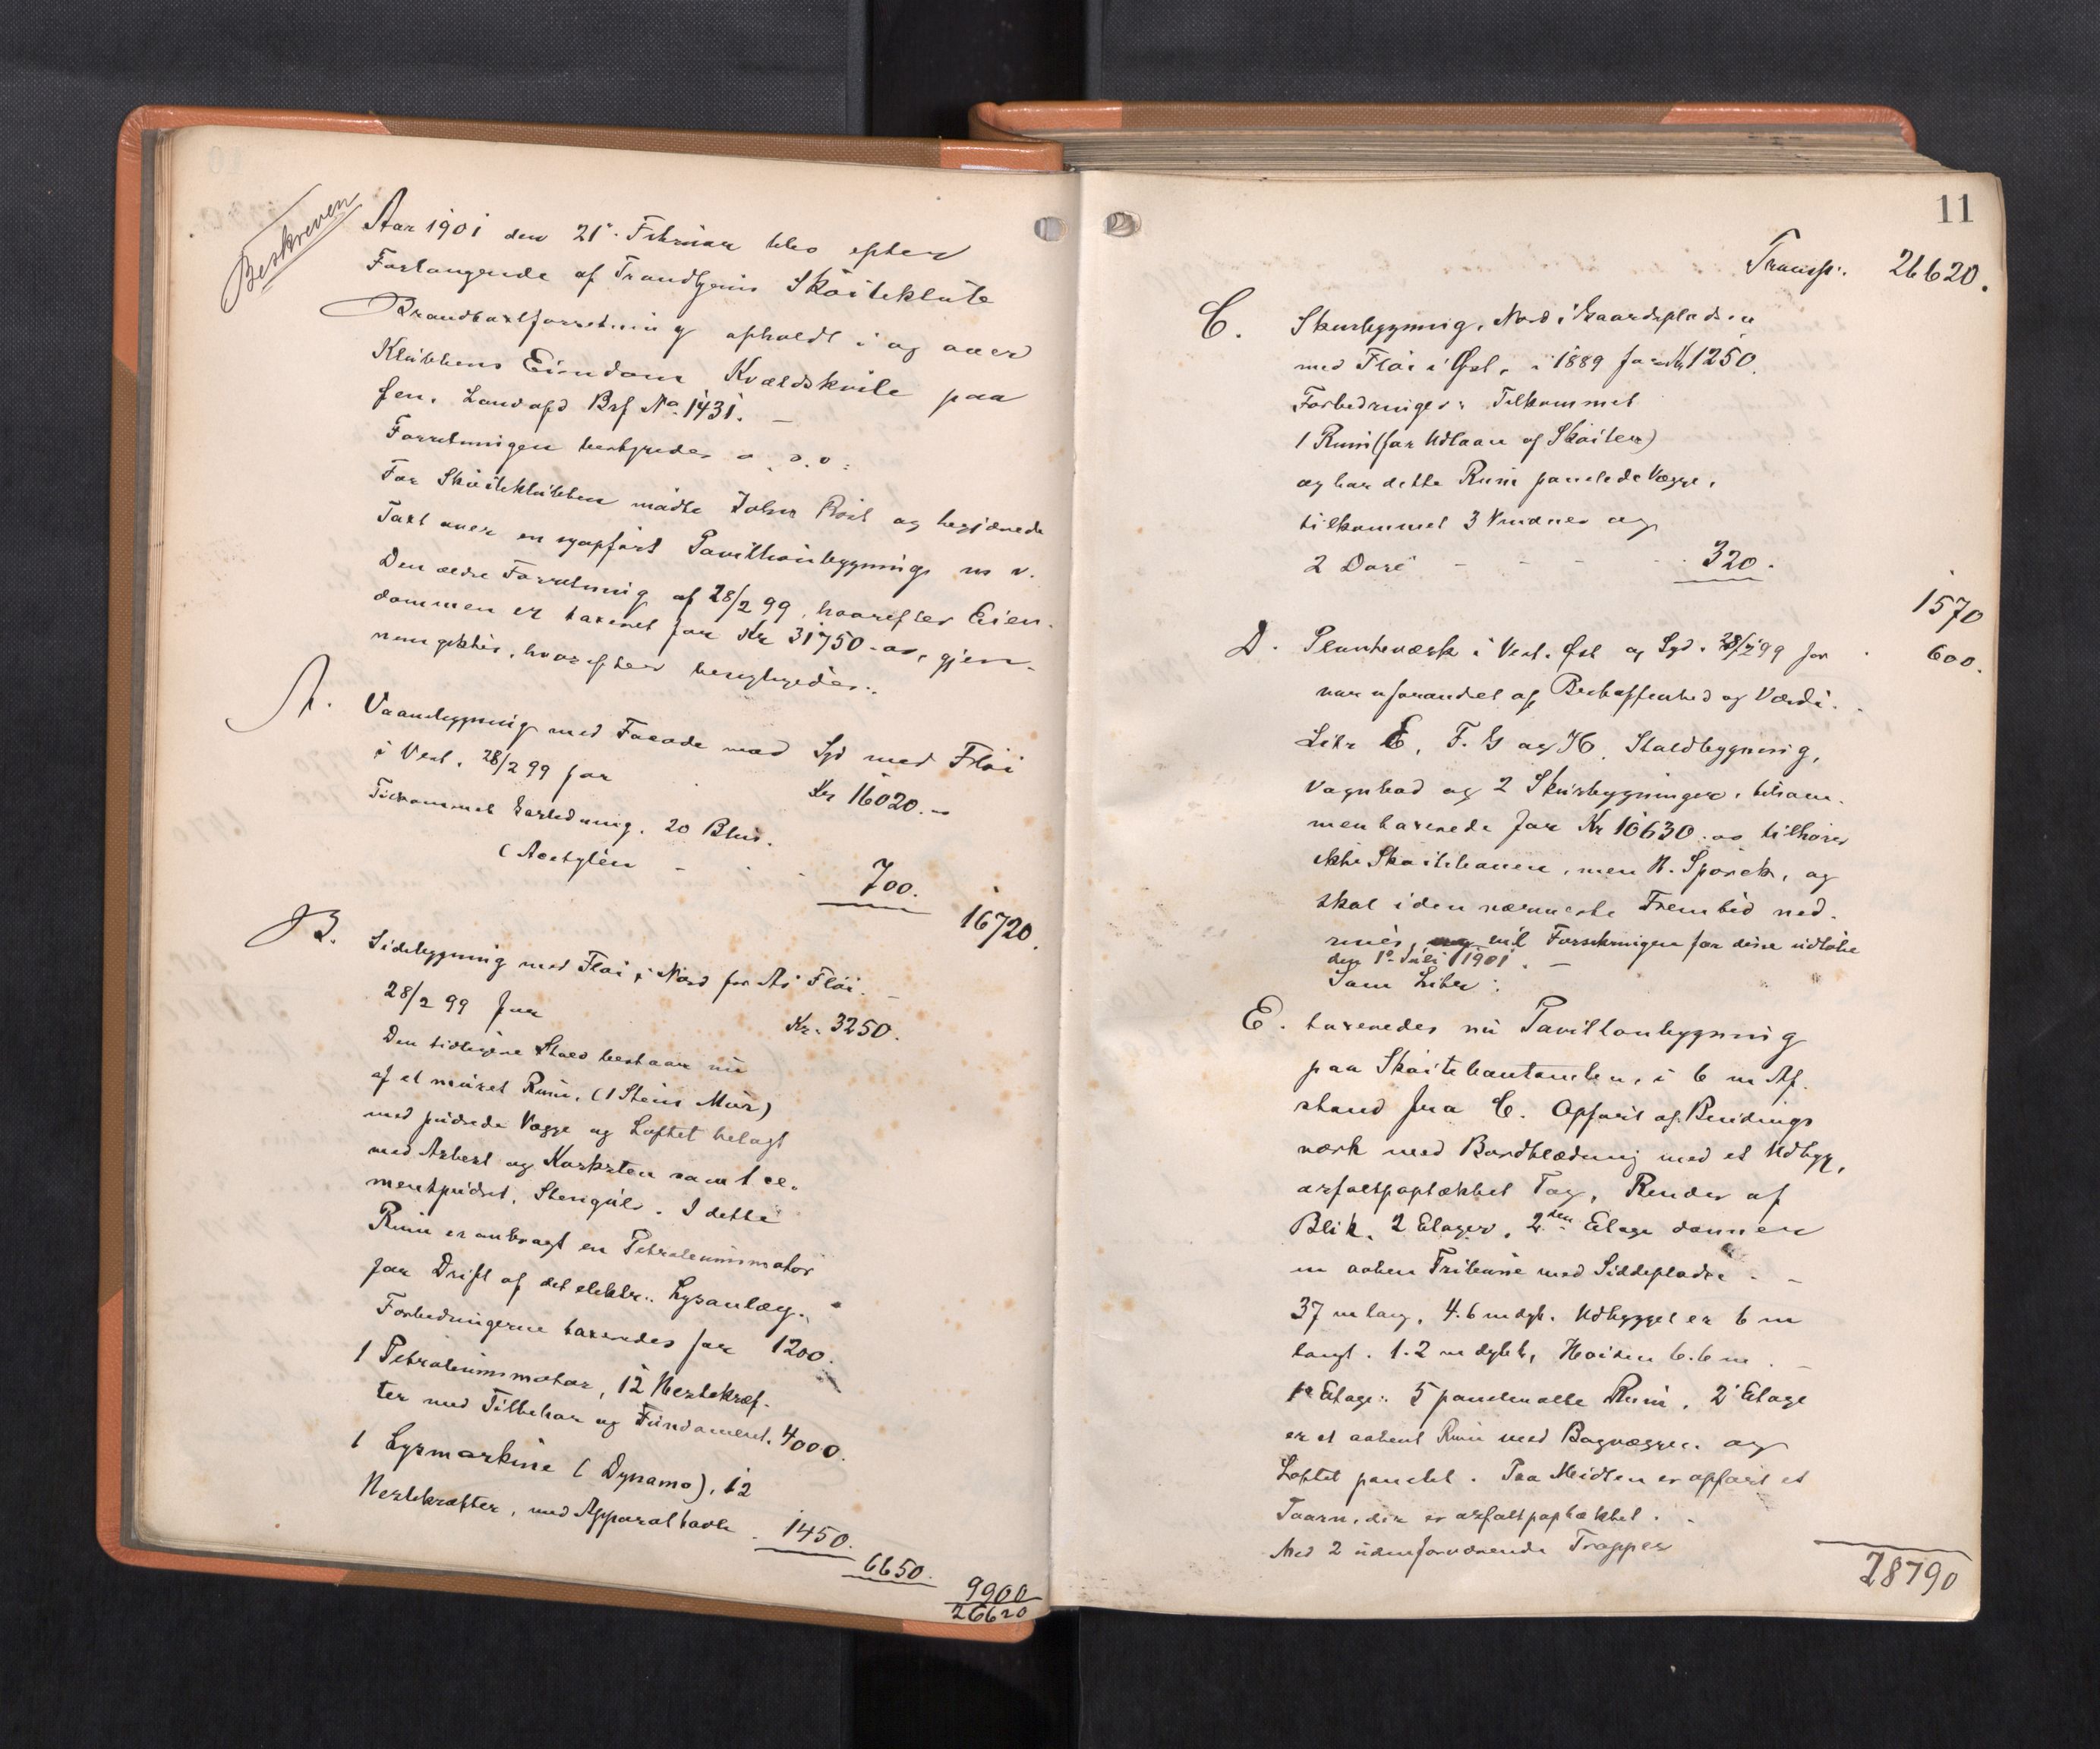 Beskreven
Aar 1901 den 21. Februar blev efter
Forlangende af Trondhjems Skøiteklub
Brandtaxtforretning afholdt i og over
Klubbens Eiendom Kvældskvile paa
Øen, Landafd Brf No. 1431. –
Forretningen bestyredes o. s. v:
For Skøiteklubben mødte John Röst og begjærede
Taxt over en nyopført Pavillonbygning m v.
Den ældre Forretning af 28/2 99, hvorefter Eien-
dommen er taxeret for Kr 31750.00, gjen-
nemgikkes, hvorefter besigtigedes:
A. Vaanbygning med Facade mod Syd med Fløi
i Vest. 28/2 99 for Kr 16020.–
Tilkommet Gasledning. 20 Blus.
(Acetylén - - - 700.
16720.
B. Sidebygning med Fløi i Nord for As Fløi. –
28/2 99 for Kr. 3250.
Den tidligere Stald bestaar nu
af et muret Rum, (1 Stens Mur)
med pudsede Vægge og Loftet belagt
med Asbest og Korksten samt ce-
mentpudset, Stengulv. I dette
Rum er anbragt en Petroleumsmotor
for Drift af det elektr. Lysanlæg.
Forbedringerne taxeredes for 1200.
1 Petroleumsmotor, 12 Hestekræf-
ter med Tilbehør og Fundament. 4000.
1 Lysmaskine (Dynamo), 12
Hestekræfter, med Apparattavle . 1450.
6650.
9900
26620
11
Transp. 26620.
C. Skurbygning, Nord i Gaardspladsen
med Fløi i Øst, i 1889 for Kr 1250.
Forbedringer: Tilkommet
1 Rum (for Udlaan af Skøiter)
og har dette Rum panelede Vægge,
tilkommet 3 Vinduer og
2 Døre - - - - 320.
1570
D. Plankeværk i Vest. Øst og Syd. 28/2 99 for . 600.
var uforandret af Beskaffenhed og Værdi.
Litr E, F. G og H. Staldbygning,
Vognbod og 2 Skurbygninger, tilsam-
men taxerede for Kr 10630.00 tilhører
ikke Skøitebanen, men H. Sporck, og
skal i den nærmeste Fremtid ned-
rives, vil Forsikringen for disse udløbe
den 1. Juli 1901. –
Som Litr:
E. taxeredes nu Pavillonbygning
paa Skøitebanetomten, i 6 m Af-
stand fra C. Opført af Bindings
værk med Bordklædning med et Udbyg,
asfaltpaptækket Tag, Render af
Blik. 2 Etager, 2den Etage danner
en aaben Tribune med Siddepladse. –
37 m lang, 4.6 m dyb. Udbygget er 6 m
langt. 1.2 m dybt, Høiden 6.6 m. –
1e Etage: 5 panelmalte Rum, 2 Etage
er et aabent Rum med Bagvægge og
Loftet panelet. Paa Midten er opført et
Taarn, der er asfaltpaptækket.
Med 2 udenforværende Trapper
28790